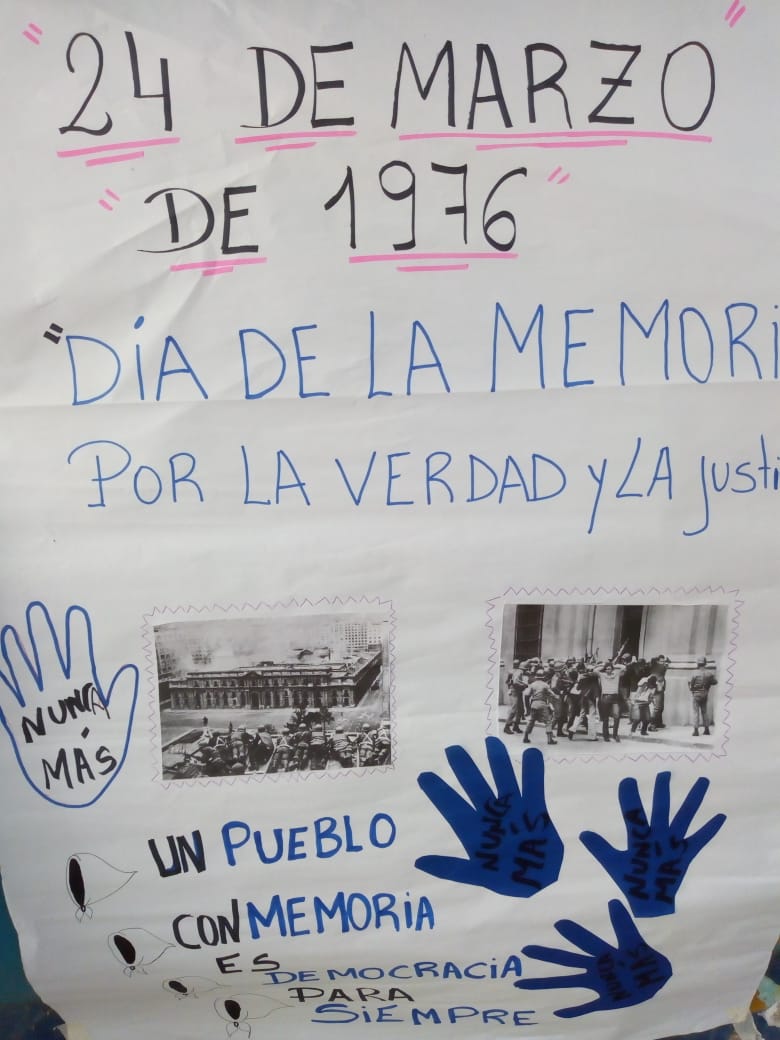 "24 DE MARZO"
"DE 1976"
"DÍA DE LA MEMORI
POR LA VERDAD y LA justi
NUNCA
MÁS
UN PUEBLO
CON MEMORIA
ES DEMOCRACIA
PARA
SIEMPRE
NUNCA
MÁS
NUNCA
MÁS
NUNCA
MÁS